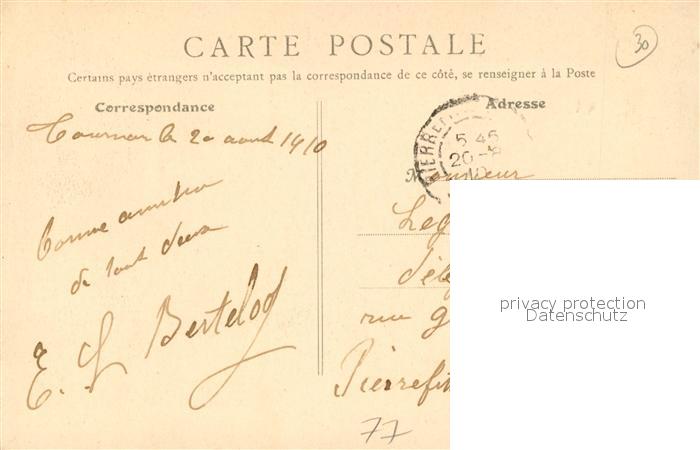 30
CARTE POSTALE
Certains pays étrangers n'acceptant pas la correspondance de ce côté, se renseigner à la Poste
Correspondance
Adresse
Tournan le 20 aout 1910
Bonne amitié
de tout deux
E. Bertelot
PIERREFI
5 45
20 -8
Monsieur
Leg
délé
rue g
Pierrefi
77
privacy protection
Datenschutz